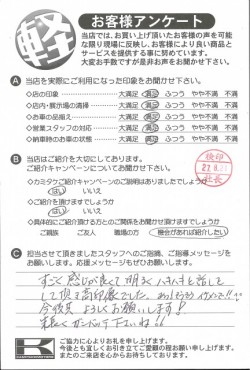 軽
お客様アンケート
当店では、お買い上げ頂いたお客様の声を可能
な限り現場に反映し、お客様により良い商品と
サービスを提供する事に努めています。
大変お手数ですが是非お声をお聞かせ下さい。
A 当店を実際にご利用になった印象をお聞かせ下さい。
◇店の印象 大満足 満足 ふつう やや不満 不満
◇店内・展示場の清掃 大満足 満足 ふつう やや不満 不満
◇お車の品揃え 大満足 満足 ふつう やや不満 不満
◇営業スタッフの対応 大満足 満足 ふつう やや不満 不満
◇納車時のお車の状態 大満足 満足 ふつう やや不満 不満
B 当店はご紹介を大切にしております。
ご紹介キャンペーンについてお聞かせ下さい。
◇カミタケご紹介キャンペーンのご説明はありましたでしょうか
はい いいえ
◇ご紹介を頂けますでしょうか
はい いいえ
◇具体的にご紹介頂ける方とのご関係をお聞かせ頂けますでしょうか
ご親族 ご友人 職場の方 機会があれば紹介したい
検印
社長
C 担当させて頂きましたスタッフへのご指摘、ご指導メッセージを
お願いします。応援メッセージもぜひお願いします。
すごく感じが良くて明るくハキハキと話を
して頂き高印象でした。
今後共 よろしくお願いします!
末長くガンバッて下さいね!!
ご協力に心よりお礼を申し上げます。
今後とも宜しくお引き立てご愛顧の程お願い申し上げます。
またのご来店を心からお待ちしております。